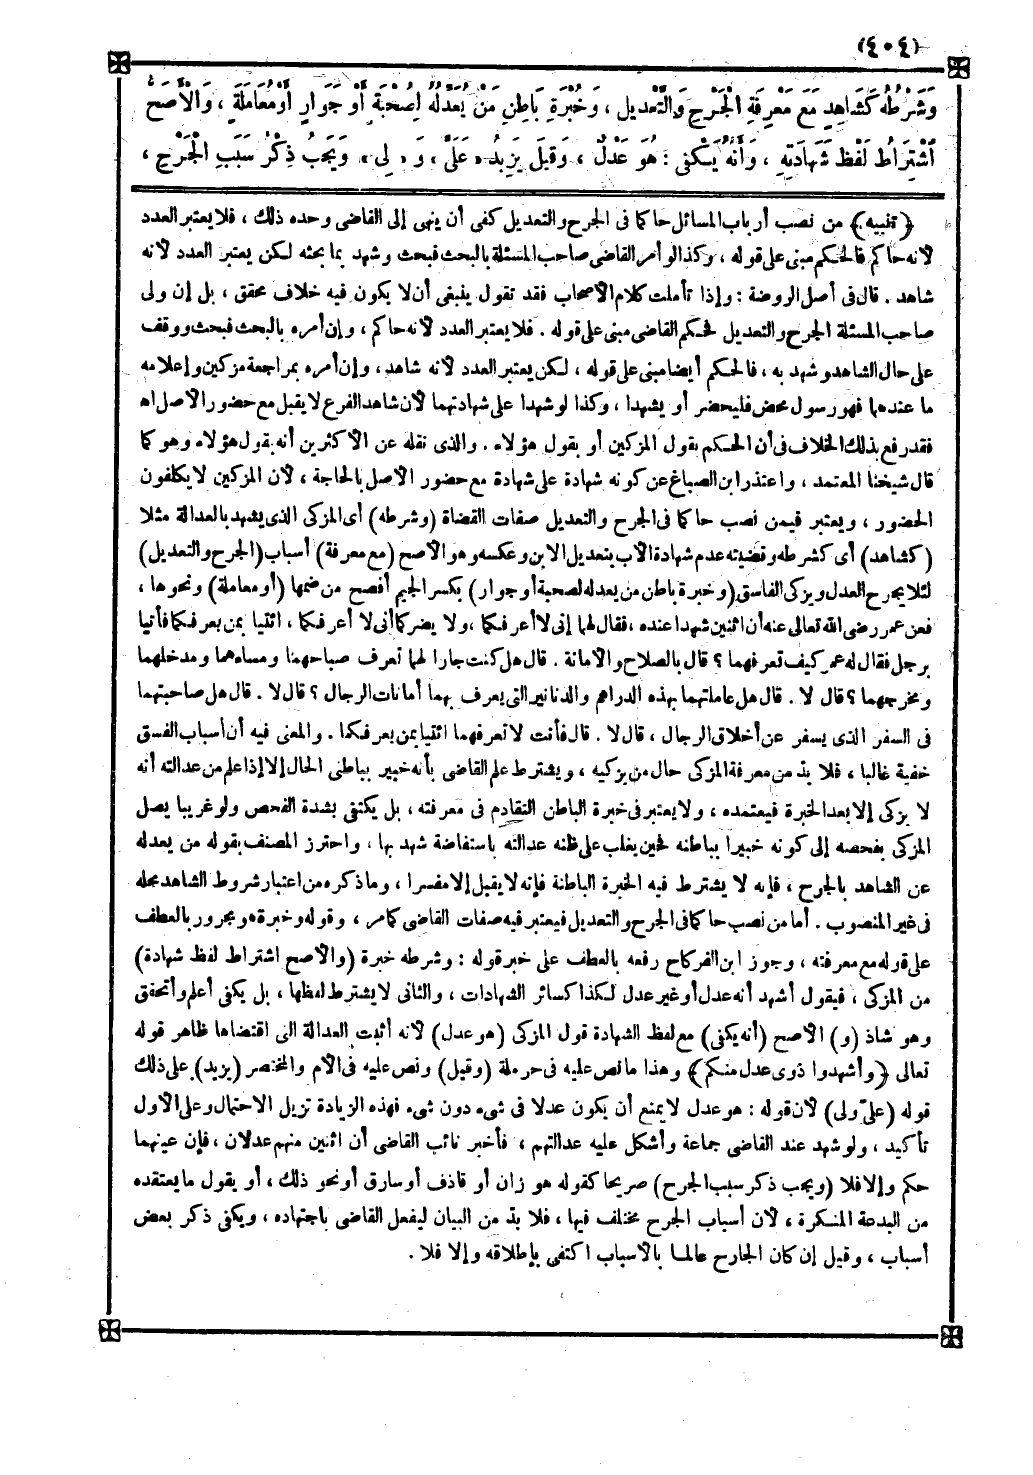 (٤٠٤)
وَشَرْطُهُ كَشَاهِدٍ مَعَ مَعْرِفَةِ الْجَرْحِ وَالتَّعْدِيلِ ، وَخُبْرَةِ بَاطِنِ مَنْ يُعَدِّلُهُ لِصُحْبَةٍ أَوْ جِوَارٍ أَوْ مُعَامَلَةٍ ، وَالْأَصَحُّ
أَشْتِرَاطُ لَفْظِ شَهَادَتِهِ ، وَأَنَّهُ يَكْفِى : هُوَ عَدْلٌ ، وَقِيلَ يَزِيدُ « عَلَىَّ » وَ « لِى » وَيَجِبُ ذِكْرُ سَبَبِ الْجَرْحِ ،
﴿ تنبيه ﴾ من نصب أرباب المسائل حاكما فى الجرح والتعديل كفى أن ينهى إلى القاضى وحده ذلك ، فلا يعتبر العدد
لأنه حاكم فالحكم مبنى على قوله ، وكذا لو أمر القاضى صاحب المسئلة بالبحث فبحث وشهد بما بحثه لكن يعتبر العدد لأنه
شاهد . قال فى أصل الروضة : وإذا تأملت كلام الأصحاب فقد تقول ينبغى أن لا يكون فيه خلاف محقق ، بل إن ولى
صاحب المسئلة الجرح والتعديل فحكم القاضى مبنى على قوله . فلا يعتبر العدد لأنه حاكم ، وإن أمره بالبحث فبحث ووقف
على حال الشاهد وشهد به ، فالحكم أيضا مبنى على قوله ، لكن يعتبر العدد لأنه شاهد ، وإن أمره بمراجعة مزكين وإعلامه
ما عندهما فهو رسول محض فليحضر أو يشهدا ، وكذا لو شهدا على شهادتهما لأن شاهد الفرع لا يقبل مع حضور الأصل اه
فقد رفع بذلك الخلاف فى أن الحكم بقول المزكين أو بقول هؤلاء . والذى نقله عن الأكثرين أنه بقول هؤلاء وهو كما
قال شيخنا المعتمد ، واعتذر ابن الصباغ عن كونه شهادة على شهادة مع حضور الأصل بالحاجة ، لأن المزكين لا يكلفون
الحضور ، ويعتبر فيمن نصب حاكما فى الجرح والتعديل صفات القضاة (وشرطه) أى المزكى الذى يشهد بالعدالة مثلا
(كشاهد) أى كشرطه وقضيته عدم شهادة الأب بتعديل الابن وعكسه وهو الأصح (مع معرفة) أسباب (الجرح والتعديل)
لئلا يجرح العدل ويزكى الفاسق (وخبرة باطن من يعدله لصحبة أو جوار) بكسر الجيم أفصح من ضمها (أو معاملة) ونحوها ،
فعن عمر رضى الله تعالى عنه أن اثنين شهدا عنده ، فقال لهما إنى لا أعرفكما ، ولا يضركما أنى لا أعرفكما ، ائتيا بمن يعرفكما فأتيا
برجل فقال له عمر كيف تعرفهما ؟ قال بالصلاح والأمانة . قال هل كنت جارا لهما تعرف صباحهما ومساءهما ومدخلهما
ومخرجهما ؟ قال لا . قال هل عاملتهما بهذه الدراهم والدنانير التى يعرف بهما أمانات الرجال ؟ قال لا . قال هل صاحبتهما
فى السفر الذى يسفر عن أخلاق الرجال ، قال لا . قال فأنت لا تعرفهما ائتيا بمن يعرفكما . والمعنى فيه أن أسباب الفسق
خفية غالبا ، فلا بدّ من معرفة المزكى حال من يزكيه ، ويشترط علم القاضى بأنه خبير بباطنى الحال إلا إذا علم من عدالته أنه
لا يزكى إلا بعد الخبرة فيعتمده ، ولا يعتبر فى خبرة الباطن التقادم فى معرفته ، بل يكتفى بشدة الفحص ولو غريبا يصل
المزكى بفحصه إلى كونه خبيرا بباطنه فحين يغلب على ظنه عدالته باستفاضة شهد بها ، واحترز المصنف بقوله من يعدله
عن الشاهد بالجرح ، فإنه لا يشترط فيه الخبرة الباطنة فإنه لا يقبل إلا مفسرا ، وما ذكره من اعتبار شروط الشاهد محله
فى غير المنصوب . أما من نصب حاكما فى الجرح والتعديل فيعتبر فيه صفات القاضى كما مر ، وقوله وخبرة هو مجرور بالعطف
على قوله مع معرفته ، وجوز ابن الفركاح رفعه بالعطف على خبر قوله : وشرطه خبرة (والأصح اشتراط لفظ شهادة)
من المزكى ، فيقول أشهد أنه عدل أو غير عدل لكذا كسائر الشهادات ، والثانى لا يشترط لفظها ، بل يكفى أعلم وأتحقق
وهو شاذ (و) الأصح (أنه يكفى) مع لفظ الشهادة قول المزكى (هو عدل) لأنه أثبت العدالة التى اقتضاها ظاهر قوله
تعالى ﴿ وأشهدوا ذوى عدل منكم ﴾ وهذا ما نص عليه فى حرملة (وقيل) ونص عليه فى الأم والمختصر (يزيد) على ذلك
قوله (علىّ ولى) لأن قوله : هو عدل لا يمنع أن يكون عدلا فى شىء دون شىء فهذه الزيادة تزيل الاحتمال وعلى الأول
تأكيد ، ولو شهد عند القاضى جماعة وأشكل عليه عدالتهم ، فأخبر نائب القاضى أن اثنين منهم عدلان ، فإن عينهما
حكم وإلا فلا (ويجب ذكر سبب الجرح) صريحا كقوله هو زان أو قاذف أو سارق أو نحو ذلك ، أو يقول ما يعتقده
من البدعة المنكرة ، لأن أسباب الجرح مختلف فيها ، فلا بدّ من البيان ليفعل القاضى باجتهاده ، ويكفى ذكر بعض
أسباب ، وقيل إن كان الجارح عالما بالأسباب اكتفى بإطلاقه وإلا فلا .